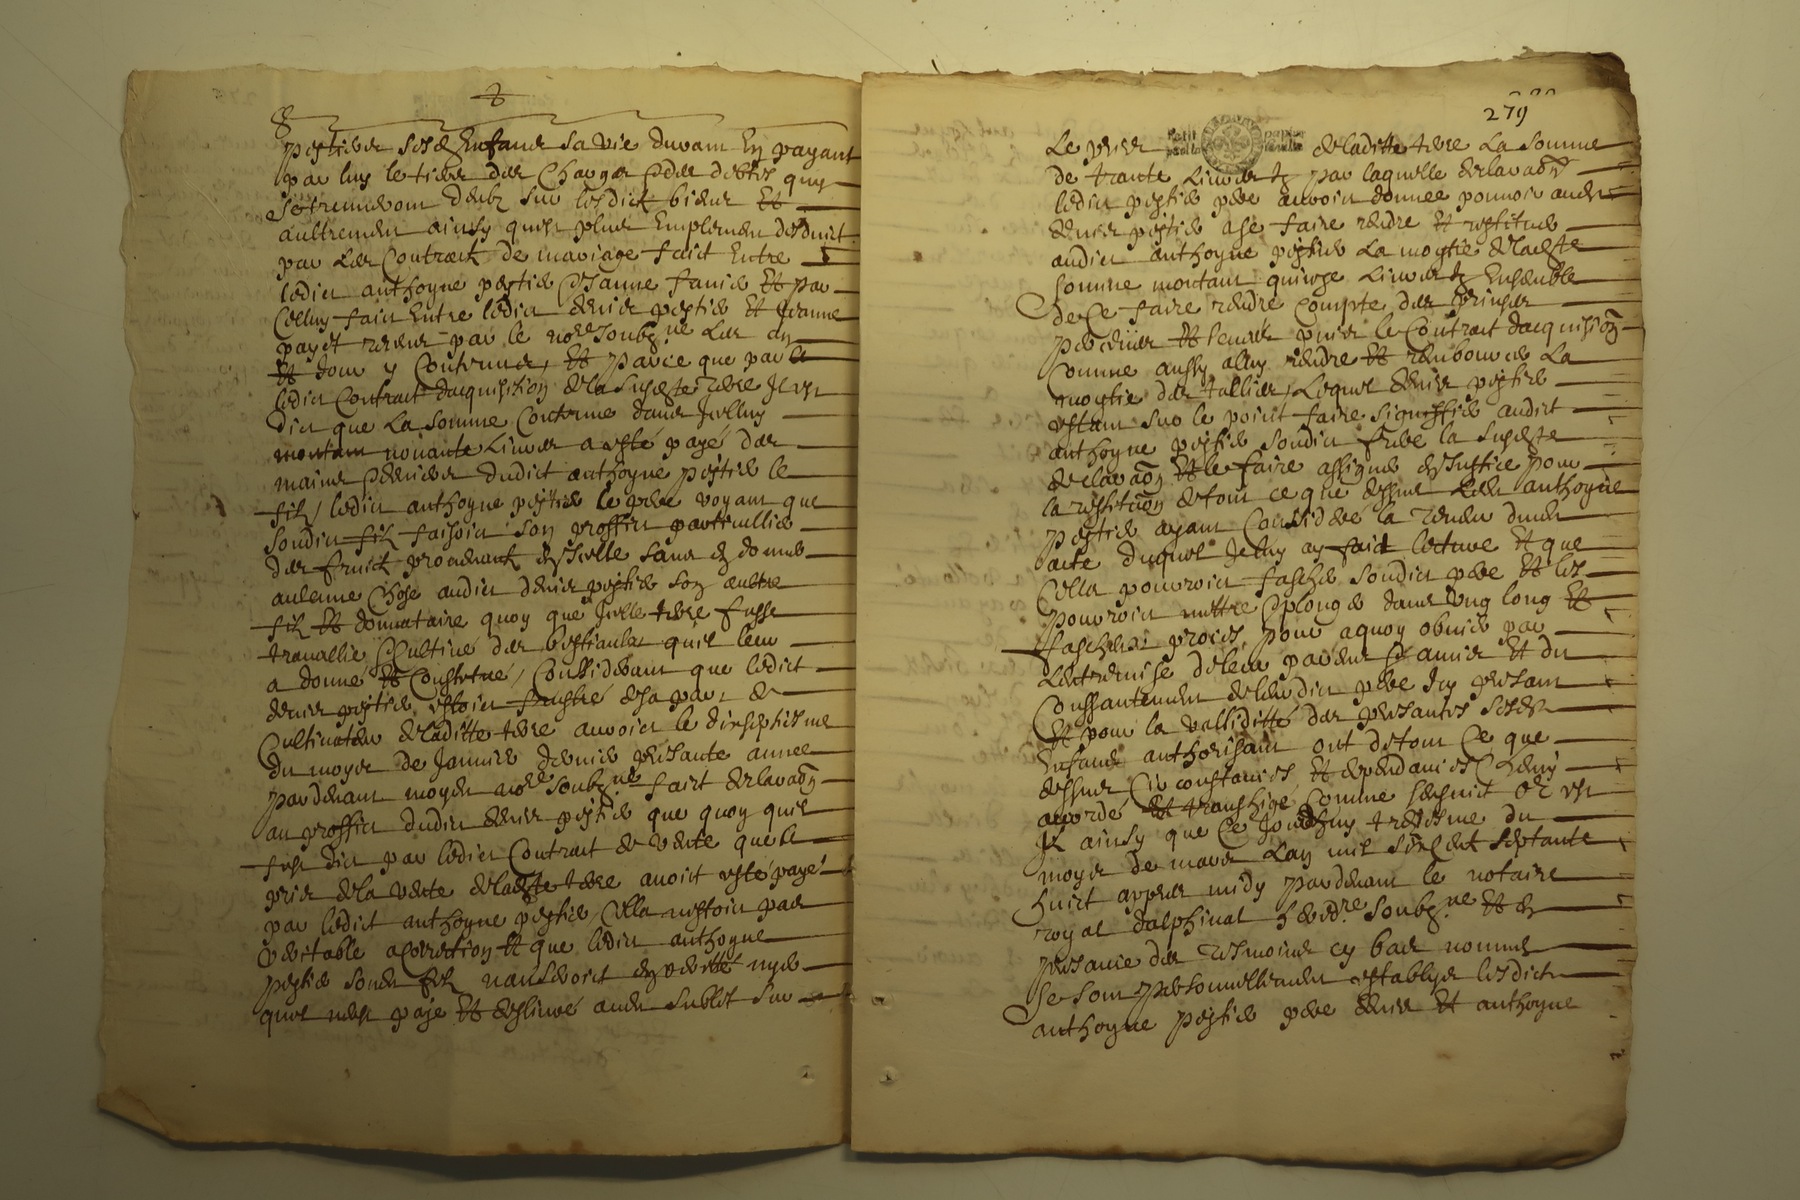 pestier sesd enfans sa vie durant en payant
par luy le tiers des charges & des debtes quy
se treuveront deubz sur lesdicts biens et
aultrement ainsy quest plus emplement desduict
par les contract de mariage faict entre
ledict anthoyne pestier & Janne et par
celluy faict entre ledict denis pestier et Jeanne
payet receus par le no.re soubz.né les an
et jour y contenus, et parce que par le
ledict contract dacquisition de la susd.te terre Il est
dict que la somme contenue dans Icelluy
montant nonante livres a esté payé des
mains & deniers dudict anthoyne pestier le
filz, ledict anthoyne pestier le pere voyant que
sondict filz faisoit son proffict particullier
des fruictz provenants dIscelle sans en donner
aulcune chose audict denis pestier son aultre
filz et donnataire quoy que Icelle terre fusse
travallie & cultivé des bestiaulx quil leur
a donné et constitué, Considerant que ledict
denis pestier estoit frustré de sa part de
cultivateur de laditte terre auroict le dixseptiesme
du moys de Janvier dernier presante annee
pardevant moydit no.re soubz.né faict declara.on
au proffict dudict denis pestier que quoy quil
fust dict par ledict Contract de vente que le
prix de la vente de lad.te terre avoict esté payé
par ledict anthoyne pestier, cella nestoit pas
veritable et que ledict anthoyne
pestier sond filz nauroict en veritté nyer
quil neust payé et deslivré audit sur
279
Petit papier
Le prix de laditte terre La somme
de trante Livres tz par laquelle declara.on
ledict pestier pere auroict donnee pouvoir aud
denis pestier a se faire rendre et restituer
audict anthoyne pestier La moytie de lad.te
somme montant quinze Livres tz Ensemble
de Ce faire rendre compte des
perceus et levés puis le Contract dacquisi.on
Comme aussy a luy rendre et rembourcer La
moytie des tallies, Lequel denis pestier
estant sur le point faire signiffier audict
anthoyne pestier sondict frere la susd.te
declara.on et le faire assigner en Justice pour
la restitu.on de tout ce que dessus led anthoyne
pestier ayant Considéré la teneur dud
acte duquel Je luy ay faict lecture et que
Cella pourroict fascher sondict pere et les
pourroict mettre & plonger dans ung long et
fascheux proces, pour a quoy obvier par
Lentremise de leur parens & amis et du
Conssantement de leurdict pere Icy presant
et pour la valliditté des presantes sesd
Enfans authorisant ont de tout Ce que
dessus Circonstances et dependances
accordé et transhigé Comme sensuict or est
Il ainsy que Ce Jourdhuy tresiesme du
moys de mars Lan mil six cent septante
huict appres midy pardevant le notaire
royal dalphinal heredi.re soubz.né et en
presance des tesmoins cy bas nommes
se sont personnellement establys lesdicts
anthoyne pestier pere denis et anthoyne